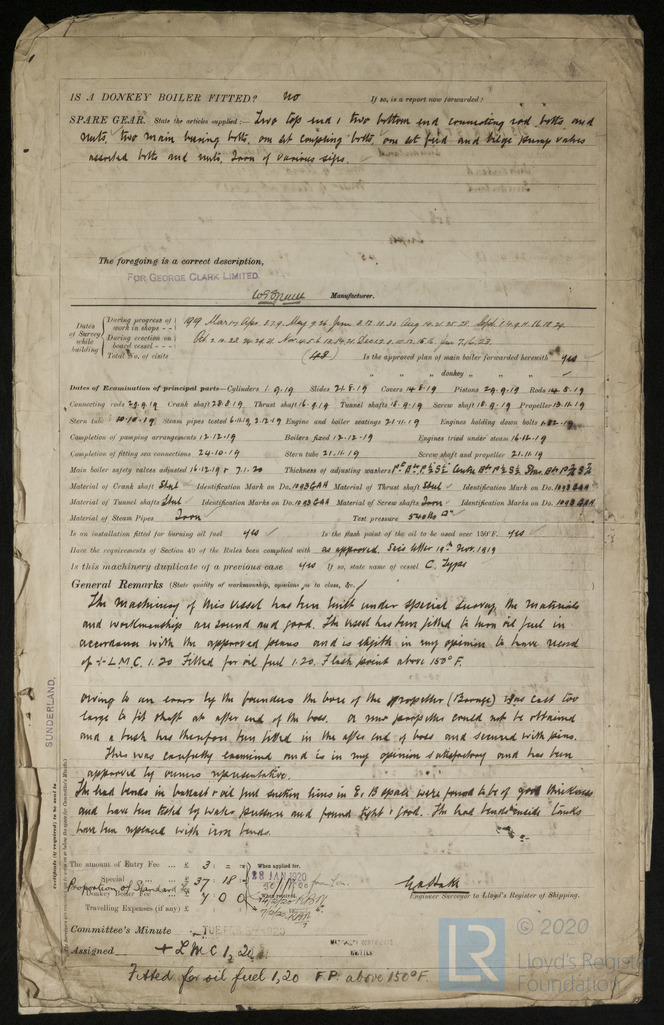 IS A DONKEY BOILER FITTED? no If so, is a report now forwarded?
SPARE GEAR. State the articles supplied:— Two top end, two bottom end connecting rod bolts and
nuts, two main bearing bolts, one set coupling bolts, one set feed and bilge pump valves
assorted bolts and nuts, Iron of various sizes.
The foregoing is a correct description,
FOR GEORGE CLARK LIMITED.
Manufacturer.
Dates of Survey while building
During progress of work in shops - -
During erection on board vessel - - -
Total No. of visits (48)
Is the approved plan of main boiler forwarded herewith yes
" " " donkey " " "
Dates of Examination of principal parts—Cylinders 1.9.19 Slides 21.8.19 Covers 14.8.19 Pistons 29.9.19 Rods 14.8.19
Connecting rods 29.9.19 Crank shaft 28.8.19 Thrust shaft 16.9.19 Tunnel shafts 18.9.19 Screw shaft 18.9.19 Propeller 13.11.19
Stern tube 10.10.19 Steam pipes tested 6.11.19, 2.12.19 Engine and boiler seatings 21.11.19 Engines holding down bolts
Completion of pumping arrangements 12.12.19 Boilers fixed 12.12.19 Engines tried under steam 16.12.19
Completion of fitting sea connections 24.10.19 Stern tube 21.11.19 Screw shaft and propeller 21.11.19
Main boiler safety valves adjusted 16.12.19 & 7.1.20 Thickness of adjusting washers
Material of Crank shaft Steel Identification Mark on Do. 1093GAH Material of Thrust shaft Steel Identification Mark on Do. 1093GAH
Material of Tunnel shafts Steel Identification Marks on Do. 1093GAH Material of Screw shafts Iron Identification Marks on Do. 1093GAH
Material of Steam Pipes Iron Test pressure 540 lbs □"
Is an installation fitted for burning oil fuel yes Is the flash point of the oil to be used over 150°F. yes
Have the requirements of Section 49 of the Rules been complied with as approved. Secs letter 19th Nov. 1919
Is this machinery duplicate of a previous case yes If so, state name of vessel C. Type
General Remarks (State quality of workmanship, opinions as to class, &c.
The machinery of this vessel has been built under special survey, the materials
and workmanship are sound and good. The vessel has been fitted to burn oil fuel in
accordance with the approved plans and is eligible in my opinion to have record
of + L.M.C. 1.20 Fitted for oil fuel 1.20. Flash point above 150° F.
Owing to an error by the founders the bore of the propeller (Bronze) was cast too
large to fit shaft at after end of the boss. A new propeller could not be obtained
and a bush has therefore been fitted in the after end of boss and secured with pins.
This was carefully examined and is in my opinion satisfactory and has been
approved by owners representative.
The lead bends in ballast & oil fuel suction lines in E. & B space were found to be of good thickness
and have been tested by water pressure and found tight & good. The lead bends inside tanks
have been replaced with iron bends.
SUNDERLAND.
Certificate (if required) to be sent to
The amount of Entry Fee ... £ 3 : - :
Special ... £ 37 : 18 :
Proportion of Standard
Donkey Boiler Fee ... £ 4 0 0
Travelling Expenses (if any) £
When applied for,
28 JAN 1920
When received,
Engineer Surveyor to Lloyd's Register of Shipping.
Committee's Minute TUE. FEB. 1920
Assigned + L M C 1, 20
Fitted for oil fuel 1,20 F.P. above 150°F.
MACHINERY CERTIFICATE
WRITTEN
© 2020
LR
Lloyd's Register
Foundation